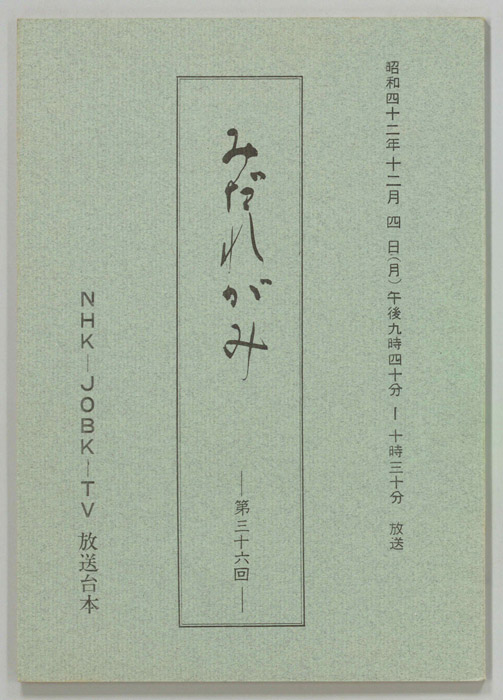 昭和四十二年十二月四日(月)午後九時四十分―十時三十分 放送
みだれがみ
―第三十六回―
NHK―JOBK―TV 放送台本